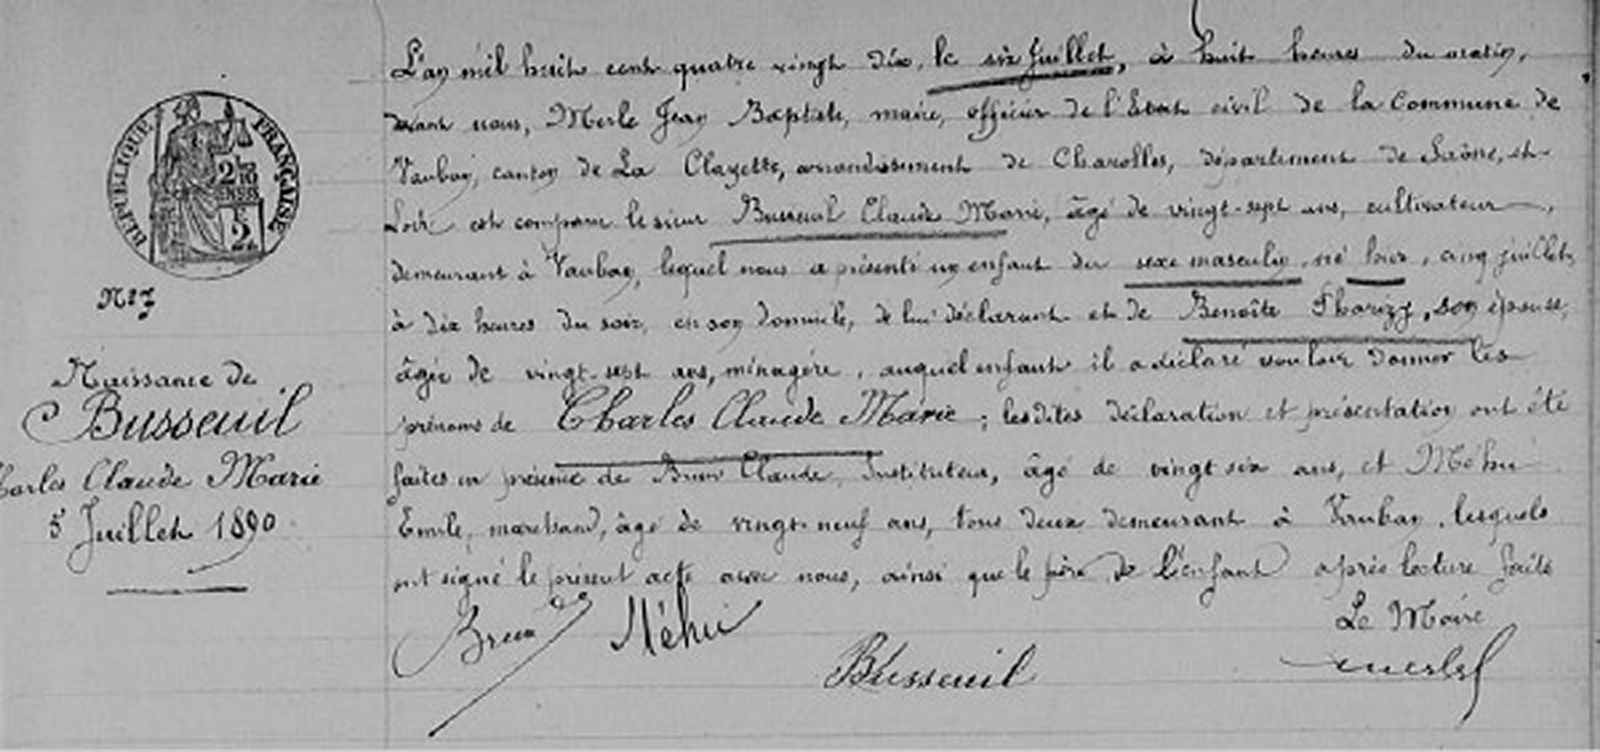 RÉPUBLIQUE FRANÇAISE
N° 7
Naissance de
Busseuil
Charles Claude Marie
5 Juillet 1890
L'an mil huit cent quatre vingt dix, le six Juillet, à huit heures du matin,
devant nous, Merle Jean Baptiste, maire, officier de l'Etat civil de la Commune de
Vauban, canton de La Clayette, arrondissement de Charolles, département de Saône, et
Loire est comparu le sieur Busseuil Claude Marie, âgé de vingt-sept ans, cultivateur,
demeurant à Vauban, lequel nous a présenté un enfant du sexe masculin, né hier, cinq juillet,
à dix heures du soir, en son domicile, de lui déclarant et de Benoîte Pharizy, son épouse,
âgée de vingt-sept ans, ménagère, auquel enfant il a déclaré vouloir donner les
prénoms de Charles Claude Marie ; les dites déclaration et présentation ont été
faites en présence de Brun Claude, Instituteur, âgé de vingt six ans, et Méhu
Emile, marchand, âgé de vingt-neuf ans, tous deux demeurant à Vauban, lesquels
ont signé le présent acte avec nous, ainsi que le père de l'enfant après lecture faite
Le Maire
Brun Méhu
Busseuil Merle